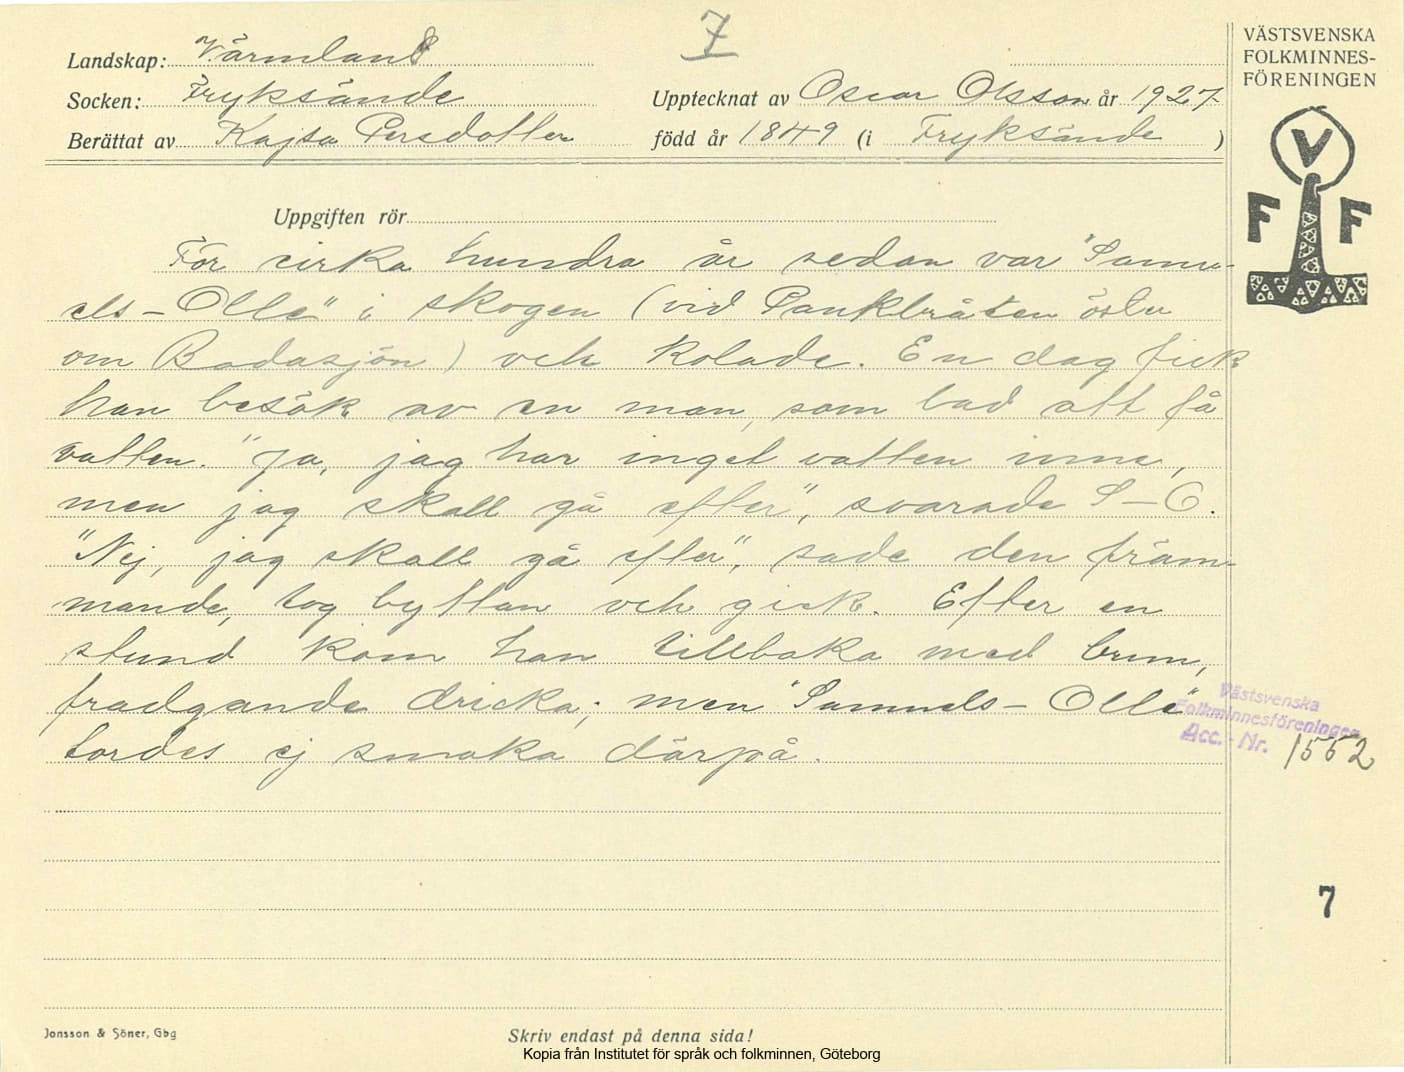 7
Landskap: Värmland
Socken: Fryksände
Upptecknat av Oscar Olsson år 1927
Berättat av Kajsa Persdotter
född år 1849 (i Fryksände)
VÄSTSVENSKA
FOLKMINNES-
FÖRENINGEN
V
F F
Uppgiften rör
För cirka hundra år sedan var "Samu-
els-Olle" i skogen (vid Pankbråten öster
om Badasjön) och kolade. En dag fick
han besök av en man, som bad att få
vatten. "Ja, jag har inget vatten inne,
men jag skall gå efter", svarade S-O.
"Nej, jag skall gå efter", sade den främ-
mande, tog byttan och gick. Efter en
stund kom han tillbaka med brun,
fradgande dricka; men "Samuels-Olle"
tordes ej smaka därpå.
Västsvenska
Folkminnesföreningen
Acc.-Nr. 1552
7
Jonsson & Söner, Gbg
Skriv endast på denna sida!
Kopia från Institutet för språk och folkminnen, Göteborg